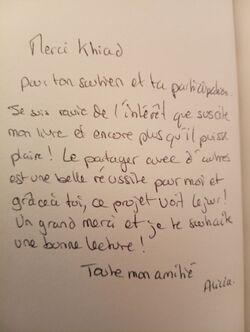 Merci Khiad
pour ton soutien et ta participation.
Je suis ravie de l'intérêt que suscite
mon livre et encore plus qu'il puisse
plaire ! Le partager avec d'autres
est une belle réussite pour moi et
grâce à toi, ce projet voit le jour !
Un grand merci et je te souhaite
une bonne lecture !
Toute mon amitié
Alicia.